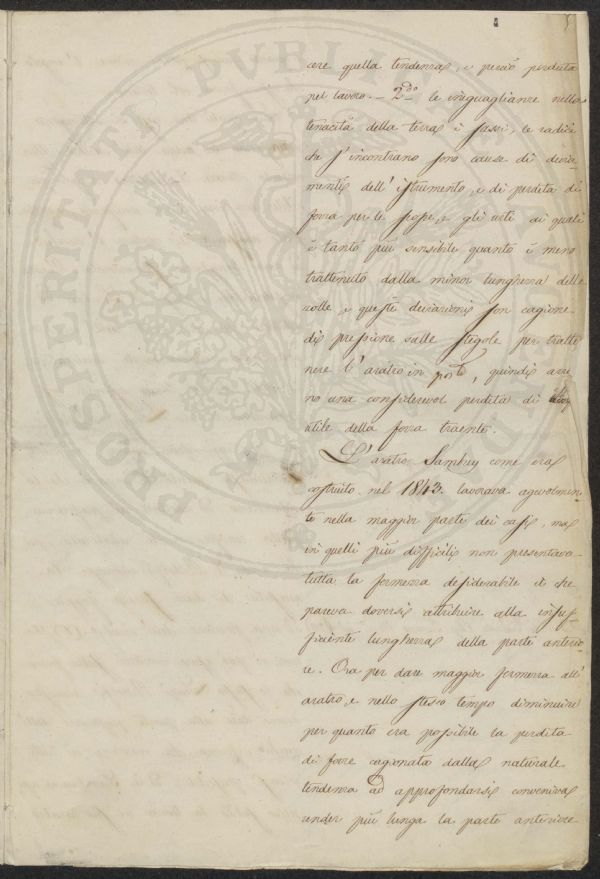 cere quella tendenza, e perciò perduta
pel lavoro. — 2.do le ineguaglianze nella
tenacità della terra i sassi, le radici
che s'incontrano sono causa di devia-
menti dell'istrumento, e di perdita di
forza per le scosse, e gli urti ai quali
è tanto più sensibile quanto è meno
trattenuto dalla minor lunghezza delle
zolle, e queste deviazioni son cagione
di pressione sulle stegole per tratte
nere l'aratro in posto, quindi avre
no una considerevol perdita di
utile della forza traente.
L'aratro Sambuy come era
costruito nel 1843. lavorava agevolmen-
te nella maggior parte dei casi, ma
in quelli più difficili non presentava
tutta la fermezza desiderabile il che
pareva doversi attribuire alla insuf-
ficiente lunghezza della parte anterio-
re. Ora per dare maggior fermezza all'
aratro, e nello stesso tempo diminuire
per quanto era possibile la perdita
di forze cagionata dalla naturale
tendenza ad approfondarsi conveniva
render più lunga la parte anteriore
PROSPERITATI PVBLICAE